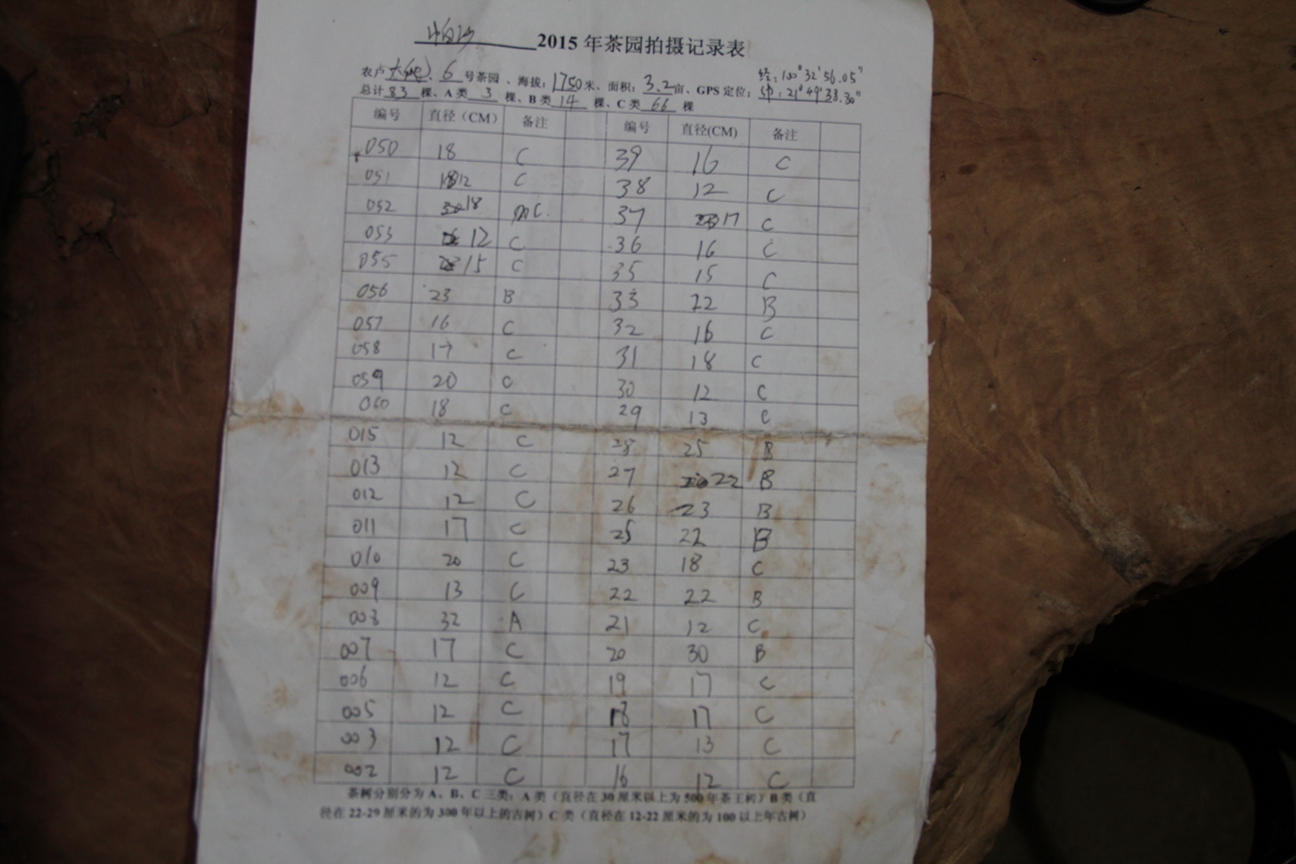 2015年茶园拍摄记录表
农户 6 号茶园 、海拔:1750米、面积:3.2亩、GPS定位: 经:100°32′56.05″
总计 83 棵、A类 3 棵、B类 14 棵、C类 66 棵 21°49′38.30″
编号 直径(CM) 备注 编号 直径(CM) 备注
050 18 C 39 16 C
051 12 C 38 12 C
052 18 C. 37 17 C
053 12 C 36 16 C
055 15 C 35 15 C
056 23 B 33 22 B
057 16 C 32 16 C
058 17 C 31 18 C
059 20 C 30 12 C
060 18 C 29 13 C
015 12 C 28 25 B
013 12 C 27 22 B
012 12 C 26 23 B
011 17 C 25 22 B
010 20 C 23 18 C
009 13 C 22 22 B
008 32 A 21 12 C
007 17 C 20 30 B
006 12 C 19 17 C
005 12 C 18 17 C
003 12 C 17 13 C
002 12 C 16 12 C
茶树分别分为A、B、C三类:A类(直径在30厘米以上为500年茶王树)B类(直
径在22-29厘米的为300年以上的古树)C类(直径在12-22厘米的为100以上年古树)